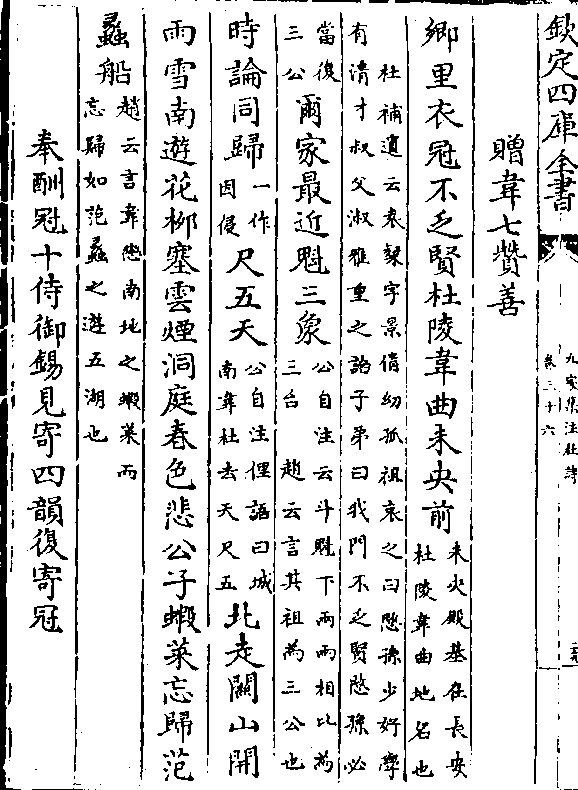 欽定四庫全書
九家集注杜詩
卷三十六
贈韋七贊善
鄉里衣冠不乏賢杜陵韋曲未央前
未央殿基在長安
杜陵韋曲地名也
杜補遺云袁粲字景倩幼孤祖哀之曰愍孫少好學
有清才叔父淑雅重之語子弟曰我門不乏賢愍孫必
當復
三公
爾家最近魁三象
公自注云斗魁下兩兩相比為
三台 趙云言其祖為三公也
時論同歸
一作
因侵
尺五天
公自注俚語曰城
南韋杜去天尺五
北走關山開
雨雪南遊花柳塞雲煙洞庭春色悲公子蝦菜忘歸范
蠡船
趙云言韋南地之蝦菜而
忘歸如范蠡之遊五湖也
奉酬冠十侍御錫見寄四韻復寄冠